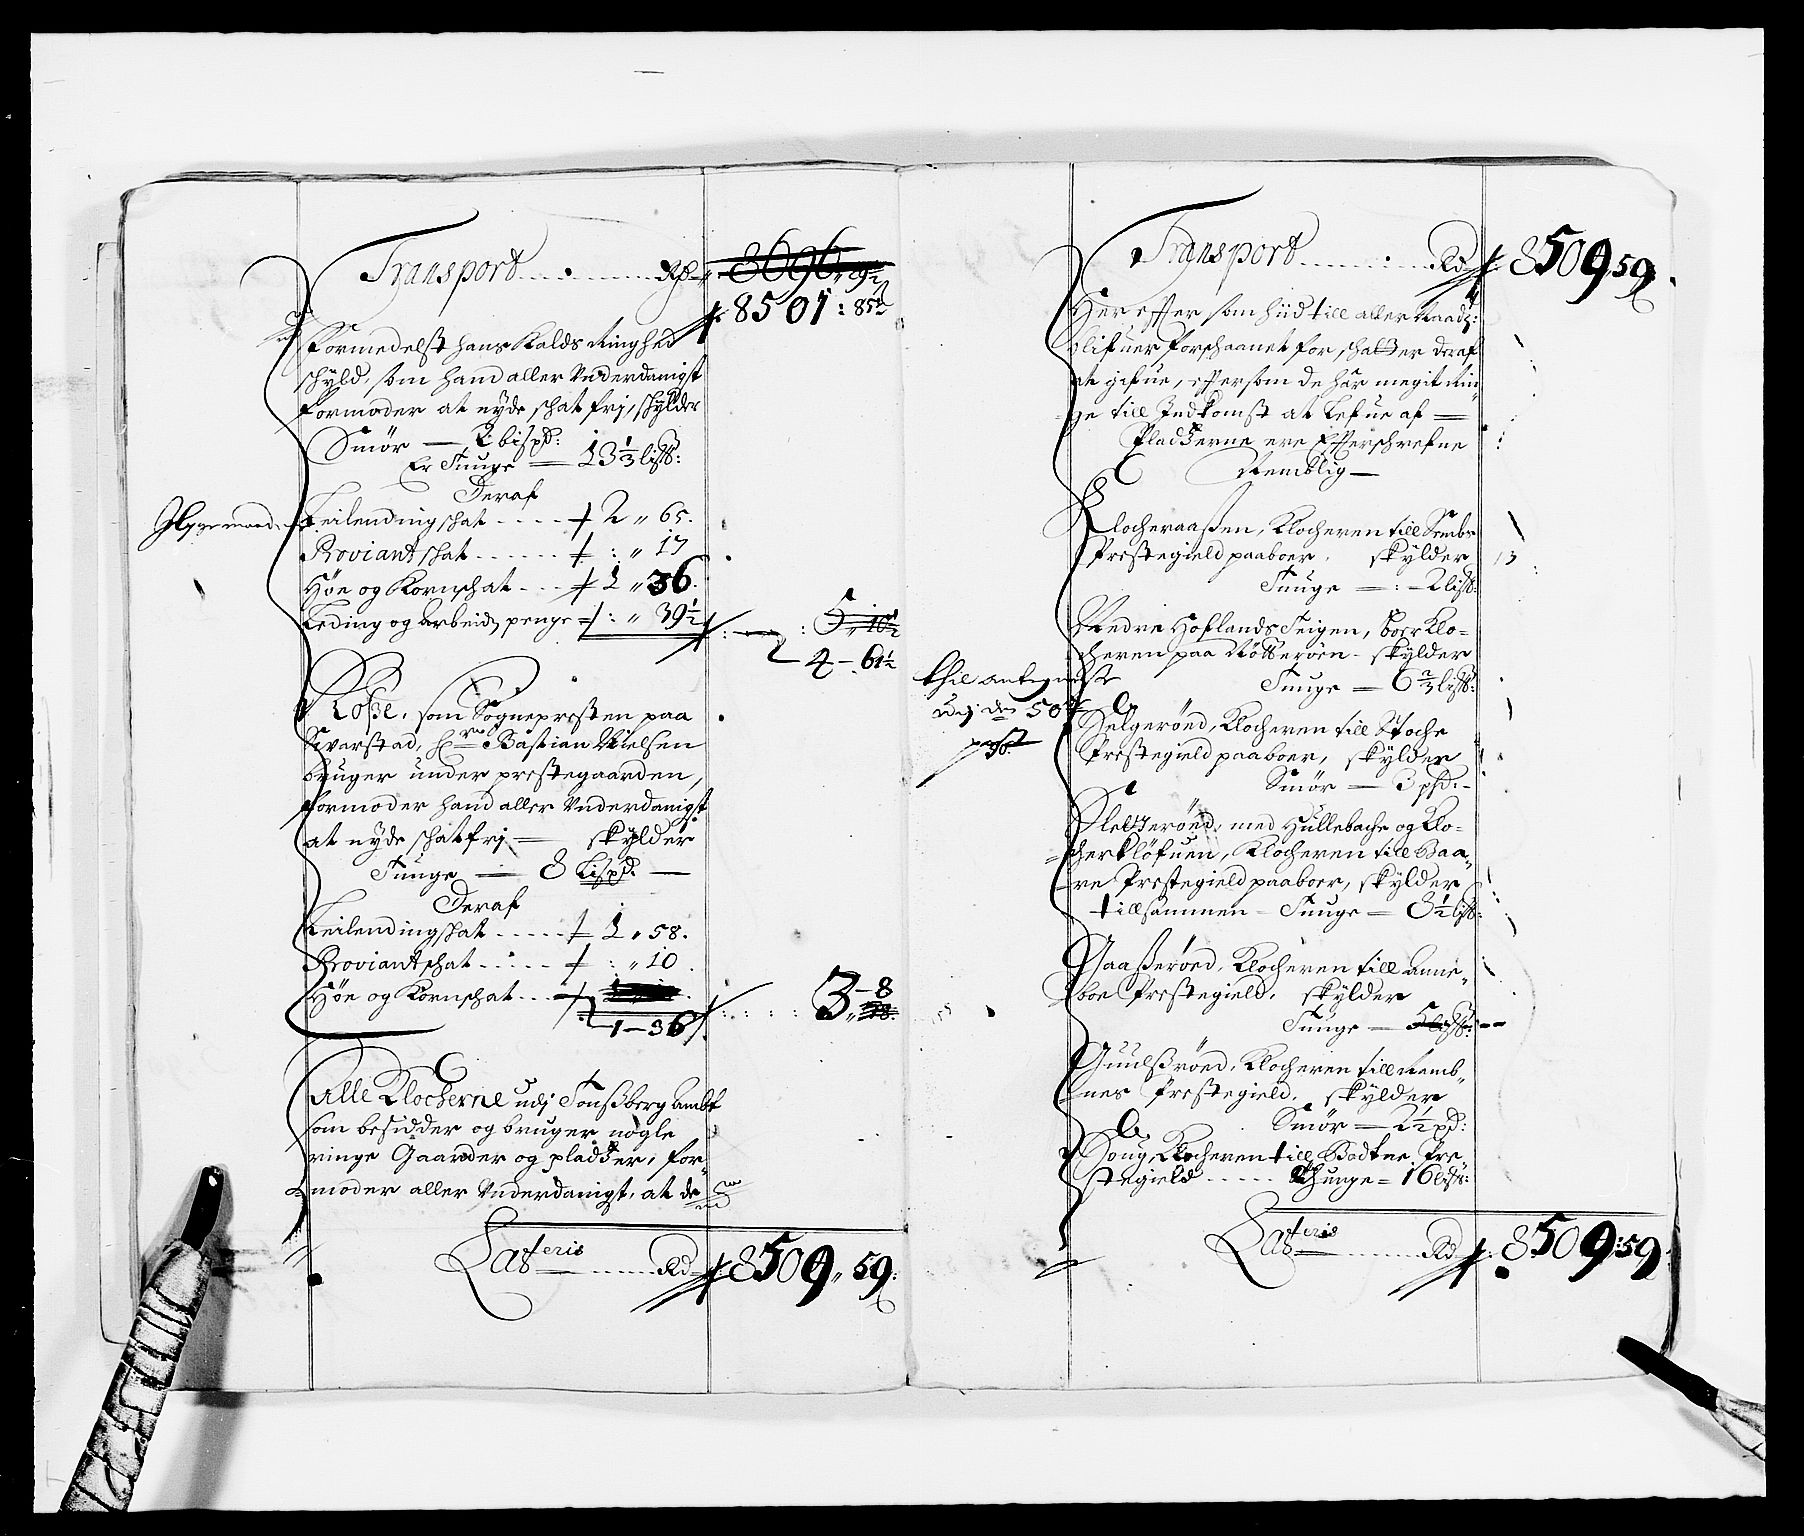 Transport ........ Rd 8696, 29½
8501: 85½
Formedelst hans Kalds Ringhed
schyld, som hand aller Underdanigst
formoder at nyde schat frj, schylder
Smør — 2 bispd:
Er Tunge = 13⅓ lispd:
Deraf
Leilending schat ..... 2 „ 65.
Proviant schat ...... : „ 17
Høe og Kornschat ... 1 „ 36.
Leding og Arbeids penge : „ 39½
5 „ 10½
4 – 61½
Røße, som Sognepresten paa
Sivarstad, Hr Bastian Nielsen
bruger under prestegaarden,
formoder hand aller Underdanigst
at nyde schatfrj — skylder
Tunge — 8 Lispd: —
Deraf
Leilendingschat ..... 1 „ 58.
Proviantschat ..... : „ 10
Høe og Kornschat ...
1–36
3–8
Alle Klocherne udj Tonsberg Ambt
som besidder og bruger nogle
ringe Gaarder og pladtzer, for„
moder aller Underdanigst, at de
Lateris ........ Rd 8509„ 59:
Transport ........ Rd 8509„ 59.
Her effter som hid till aller Naadigst
blifuer forschaanet for schatter deraf
at gifue, efftersom de har megit Rin
ge till Indkomst at Lefue af =
Pladtzerne ere Effterschrefne
Nemblig —
Klocheraaßen, Klocheren till Sembs
Prestegield paaboer, skylder
Tunge = : – 2 lispd:
Nedre Hoflands Teigen, boer Klo=
cheren paa Nötterøen – skylder
Tunge = 6⅔ lispd:
Selgerøed, Klocheren till Stoche
Prestegield paaboer, skylder
Smør — 3 pd: –
Sletterøed, med Hullebache og Klo=
cherklöfuen, Klocheren till Baa„
re Prestegield paaboer, skylder
tillsammen – Tunge = 8½ lispd:
Gaaßerøed, Klocheren till Anne„
boe Prestegield, skylder
Tunge — 5 lispd: --
Gundsrøed, Klocheren till Ramb„
nes Prestegield, skylder
Smør — 2½ pd:
Houg, Klocheren till Bodtne Pre„
stegield ..... Thunge = 16 lispd:
Lateris ........ Rd 8509:59